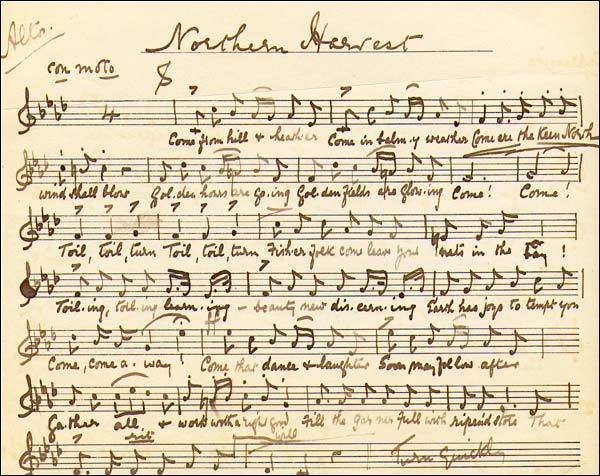 Alto.
Northern Harvest
con moto
4
Come from hill & heather Come in balm.y weather Come ere the Keen North
wind shall blow Gol.den hours are go.ing Gol.den fields are glow.ing Come! Come!
Toil, toil, turn Toil, toil, turn Fisher folk come leave your nets in the bay!
Toil.ing, toil.ing learn.ing - beauty new dis.cern.ing Earth has joys to tempt you
Come, come a.way! Come that dance & laughter Soon may follow after
Ga.ther all & work with a right good will Fill the gar ner full with store That
rit
Turn Quickly